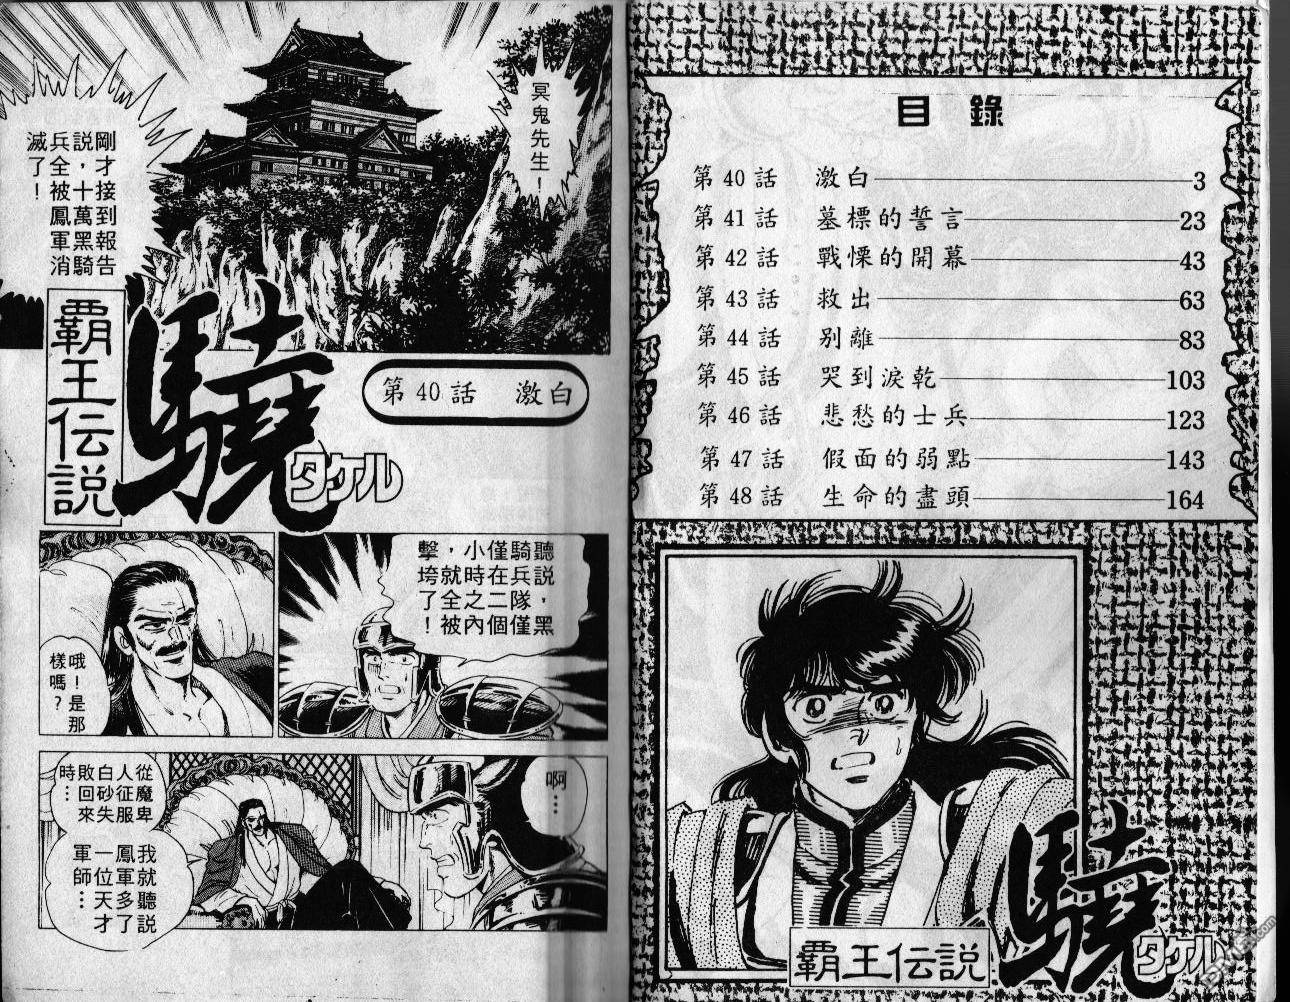 目錄
第40話 激白 3
第41話 墓標的誓言 23
第42話 戰慄的開幕 43
第43話 救出 63
第44話 別離 83
第45話 哭到淚乾 103
第46話 悲愁的士兵 123
第47話 假面的弱點 143
第48話 生命的盡頭 164
霸王伝説
驍
タケル
冥鬼先生！
剛才接到報告
説，十萬黑騎
兵全被鳳軍消
滅了！
霸王伝説
驍
タケル
第40話 激白
聽説，黑
騎兵隊僅
僅在二個
小時之內
，就全被
擊垮了！
哦！是那
樣嗎？
啊…
從魔卑
人征服
白砂失
敗回來
時…
我就聽説
鳳軍多了
一位天才
軍師…